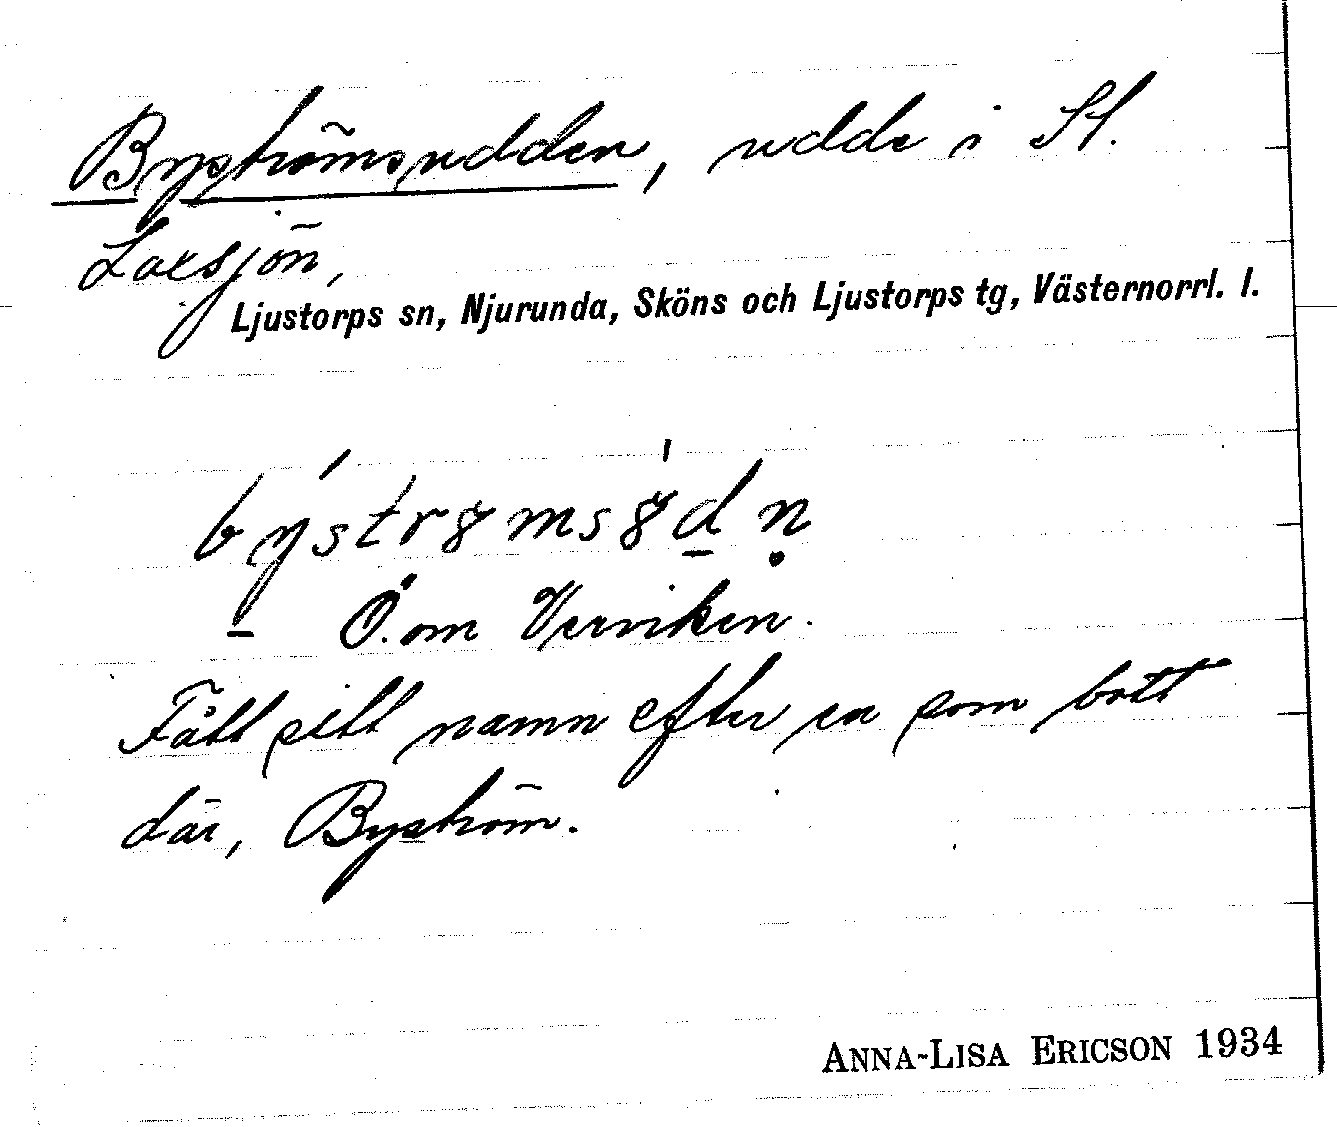 Byströmsudden, udde i St.
Laxsjön,
Ljustorps sn, Njurunda, Sköns och Ljustorps tg, Västernorrl. l.
býstrømsø̍d̲n̥
Ö. om Verviken.
Fått sitt namn efter en som bott
där, Byström.
ANNA-LISA ERICSON 1934